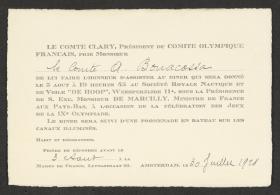 LE COMTE CLARY, PRÉSIDENT DU COMITÉ OLYMPIQUE
FRANÇAIS, PRIE MONSIEUR
le Comte A. Bonacossa
DE LUI FAIRE L'HONNEUR D'ASSISTER AU DINER QUI SERA DONNÉ
LE 3 AOUT À 19 HEURES 45 AU SOCIÉTÉ ROYALE NAUTIQUE ET
DE VOILE "DE HOOP", WEESPERZIJDE SOUS LA PRÉSIDENCE
DE S. EXC. MONSIEUR DE MARCILLY, MINISTRE DE FRANCE
AUX PAYS-BAS, À L'OCCASION DE LA CÉLÉBRATION DES JEUX
DE LA IXe OLYMPIADE.
LE DINER SERA SUIVI D'UNE PROMENADE EN BATEAU SUR LES
CANAUX ILLUMINÉS.
HABIT ET DÉCORATIONS.
PRIÈRE DE RÉPONDRE AVANT LE
3 Août À LA
MAISON DE FRANCE,
AMSTERDAM, LE 30 Juillet 1928